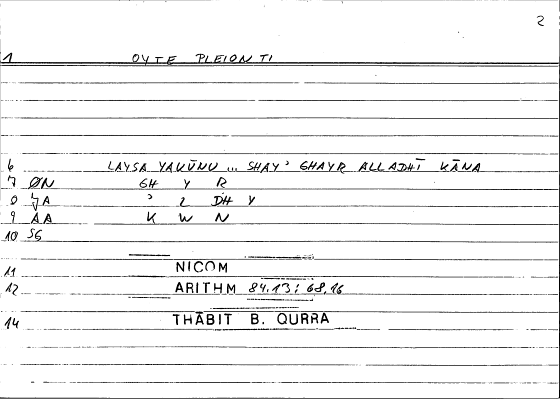 2
1 OYTE PLEIONTI
6 LAYSA YAKŪNU ... SHAY' GHAYR ALLADHĪ KĀNA
7 ØN GH Y R
8 JA ' L DH Y
9 AA K W N
10 SG
11 NICOM
12 ARITHM 84.13; 68,16
14 THĀBIT B. QURRA